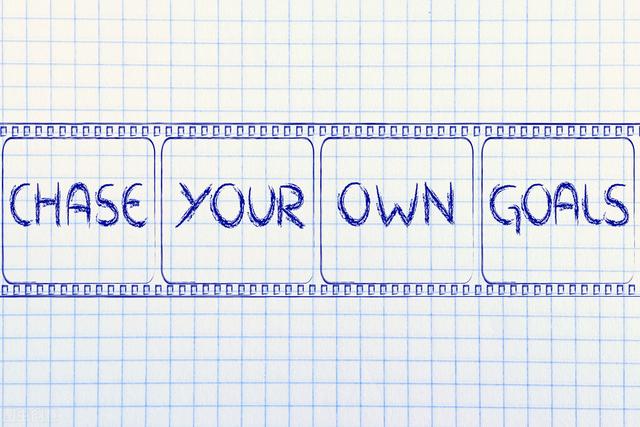 CHASE YOUR OWN GOALS